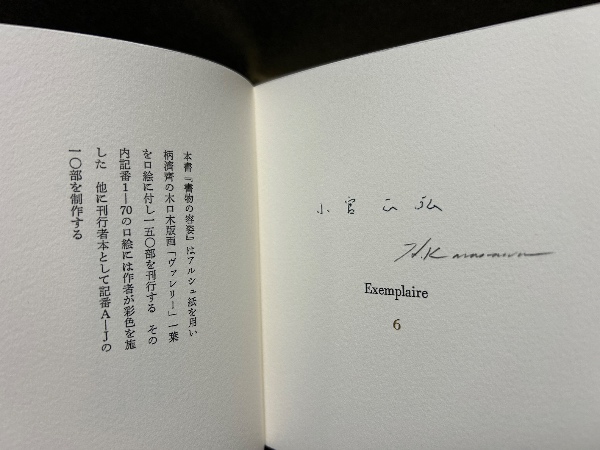 本書『書物の容姿』はアルシュ紙を用い
柄澤齊の木口木版画「ヴァレリー」一葉
を口絵に付し一五〇部を刊行する その
内記番1―70の口絵には作者が彩色を施
した 他に刊行者本として記番A―Jの
一〇部を制作する
小宮正弘
H.Karasawa
Exemplaire
6